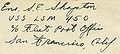 Ens. S. E. Skripton
USS LSM 450
c/o Fleet Post Office
San Francisco, Calif